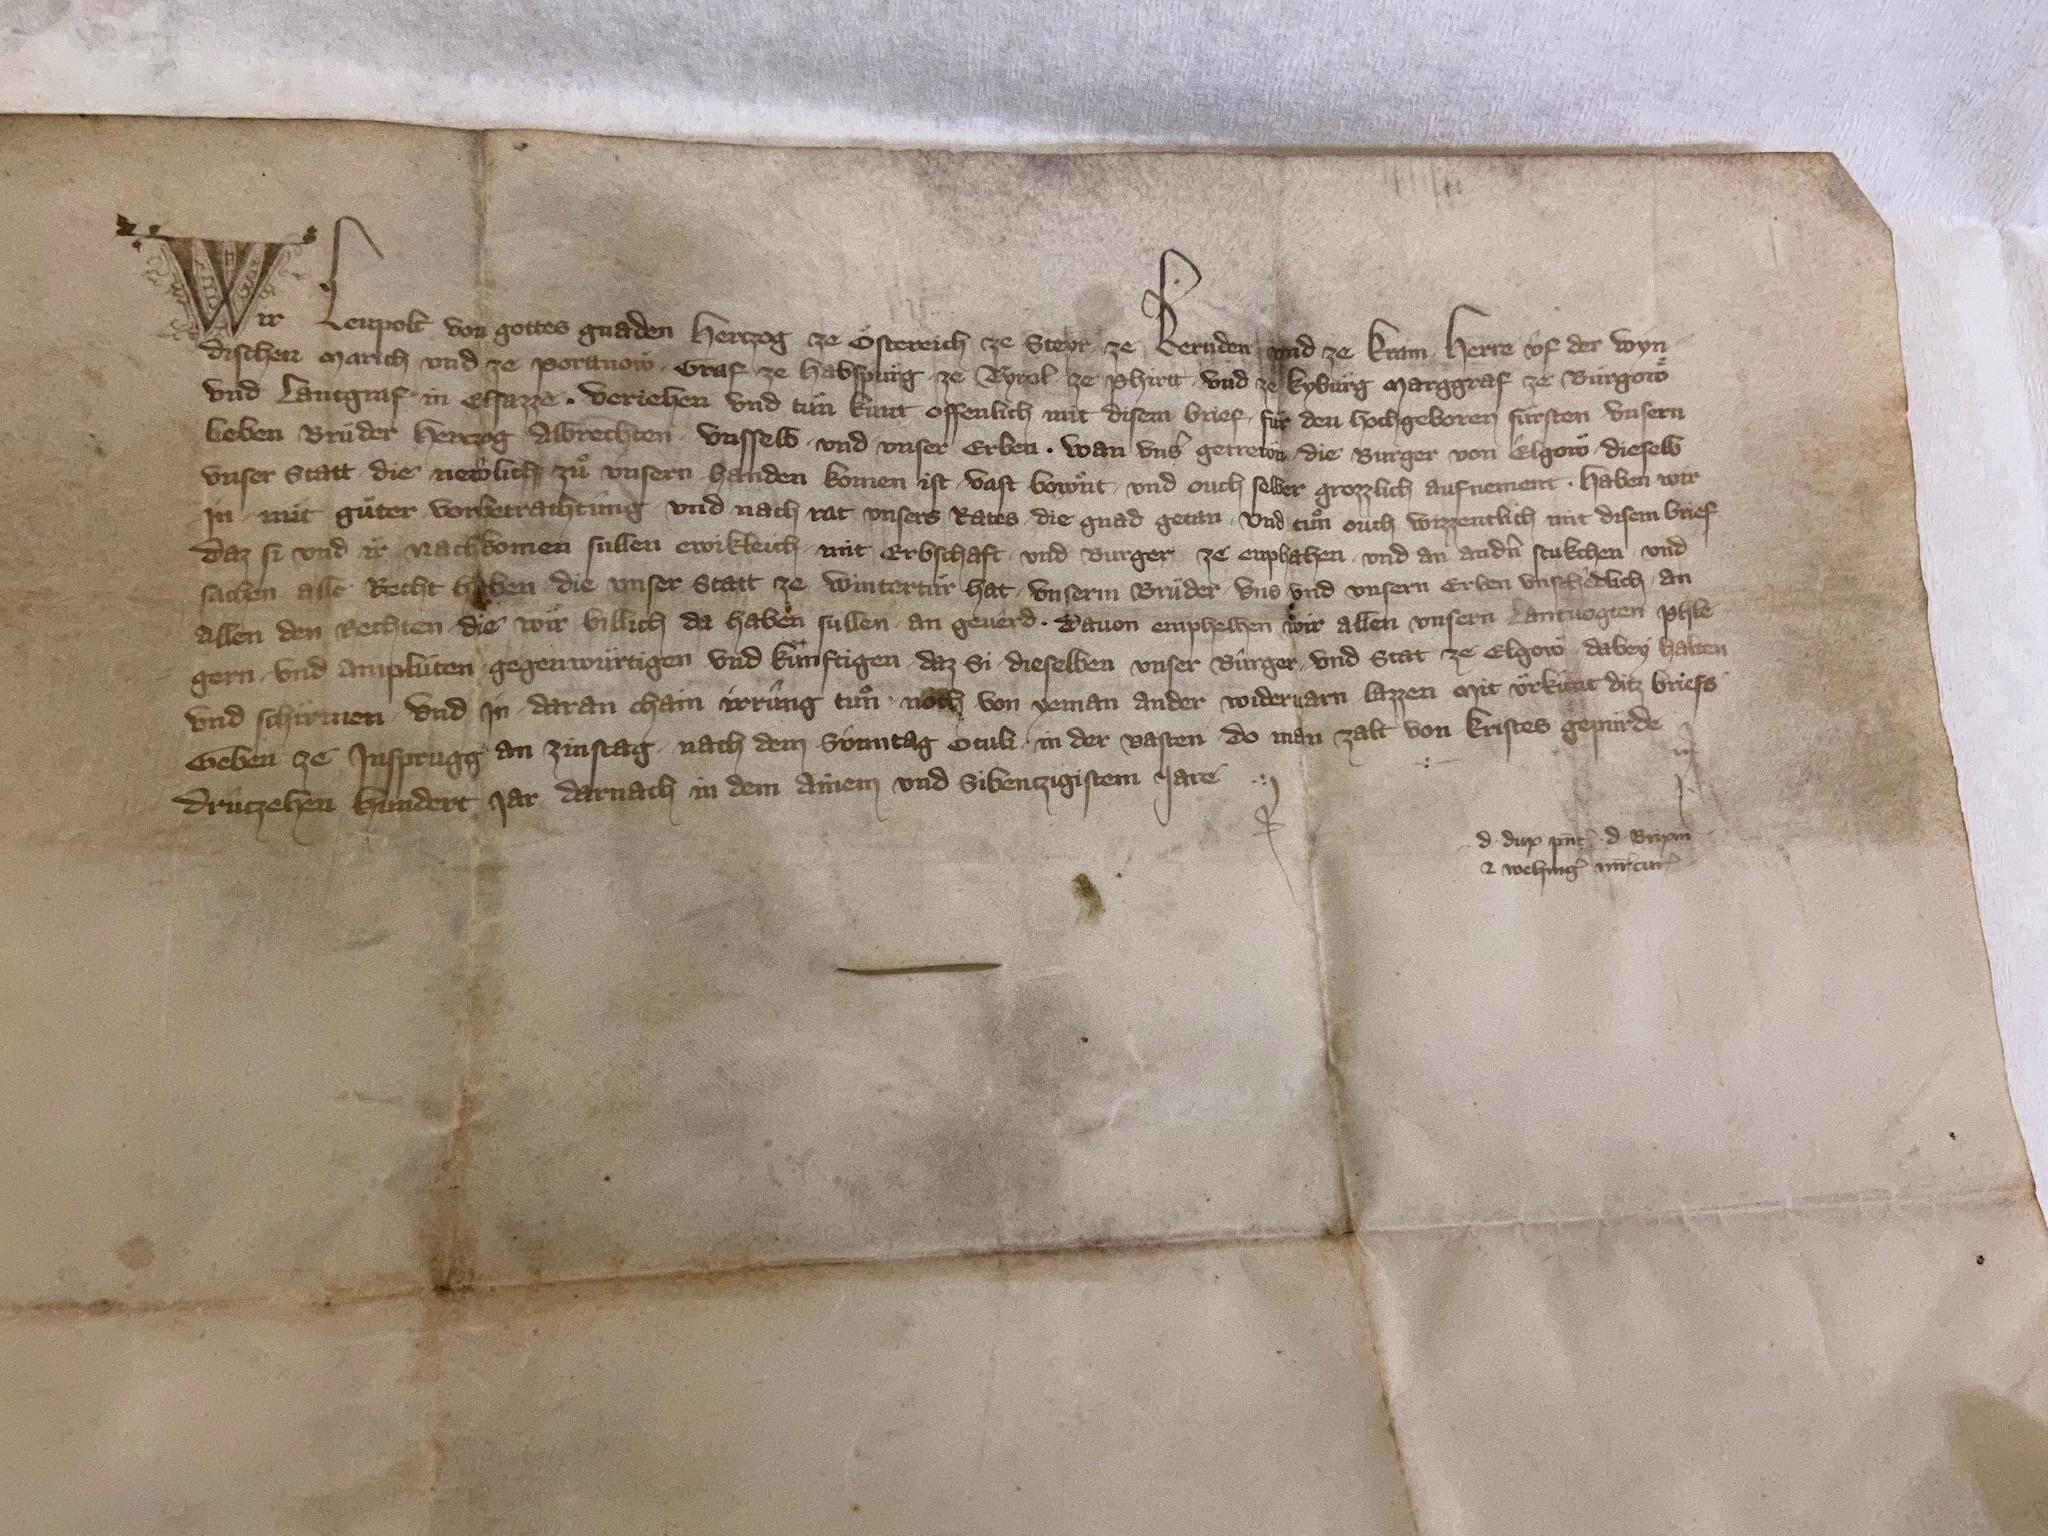 Wir Leupolt von gottes gnaden Hertzog ze Österreich ze Steyr ze Kernden und ze Krain Herre uf der Wyn
dischen March und ze Porttnow Graf ze Habspurg ze Tyrol ze Phirtt und ze Kyburg Marggraf ze Burgow
und Lantgraf in Elsazze. Veriehen und tun kunt offenlich mit disem brief für den hochgeboren fürsten unsern
lieben Brüder Hertzog Albrechten unsselb und unser Erben. Wan uns getrewn die Burger von Elgöw dieselb
unser Statt die newlich zů unsern handen komen ist vast bowent und ouch selber grozzlich aufnement. Haben wir
In mit güter vorbetrachtung und nach rat unsers Rates die gnad getan und tůn ouch wizzentlich mit disem brief
Daz si und ir Nachkomen sullen ewikleich mit Erbschaft und Burger ze enphahen und an andn stukchen und
sachen alle Recht haben die unser Statt ze Wintertur hat unserm Brüder uns und unsern Erben unschedlich an
allen den Rechten die wir billich da haben sullen an geuerd. Dauon emphelhen wir allen unsern Lantuogten Phle
gern und Amptlüten gegenwürtigen und künftigen daz Si dieselben unser Burger und Stat ze Elgöw dabey halten
und schirmen und In daran chain irrung tůn noch von yeman ander wideruarn lazzen Mit ürkunt ditz briefs
Geben ze Insprugg an zinstag nach dem Sunntag Oculi in der vasten do man zalt von Kristes gepürde
Drützehen hundert Jar darnach in dem Ainem und Sibentzigistem Jare
d dux pnt d Brixin
2 wehing mrcur